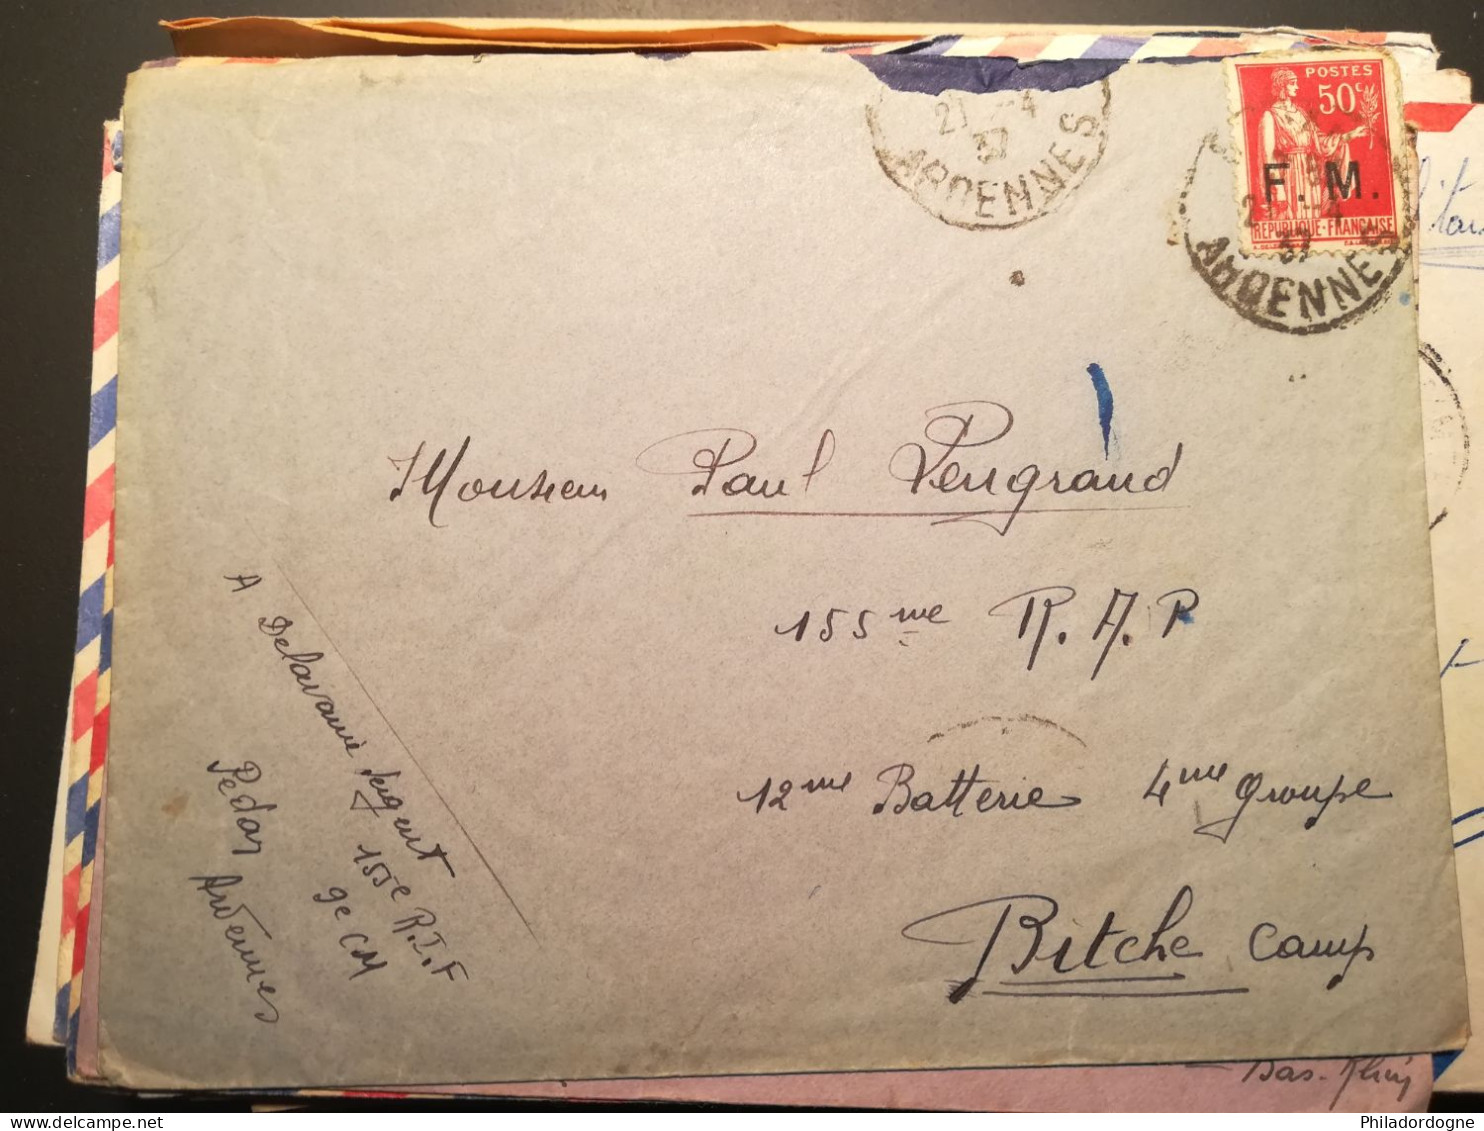 21 -4
37
ARDENNES
POSTES
50c
F. M.
REPUBLIQUE-FRANÇAISE
37
ARDENNES
Monsieur Paul Pengrand
155 me R. A. P
12 me Batterie 4 me groupe
Bitche Camp
A Delavanie Sergent
155e R.I.F
9e CM
Ardennes
Bas-Rhin
Philadordogne